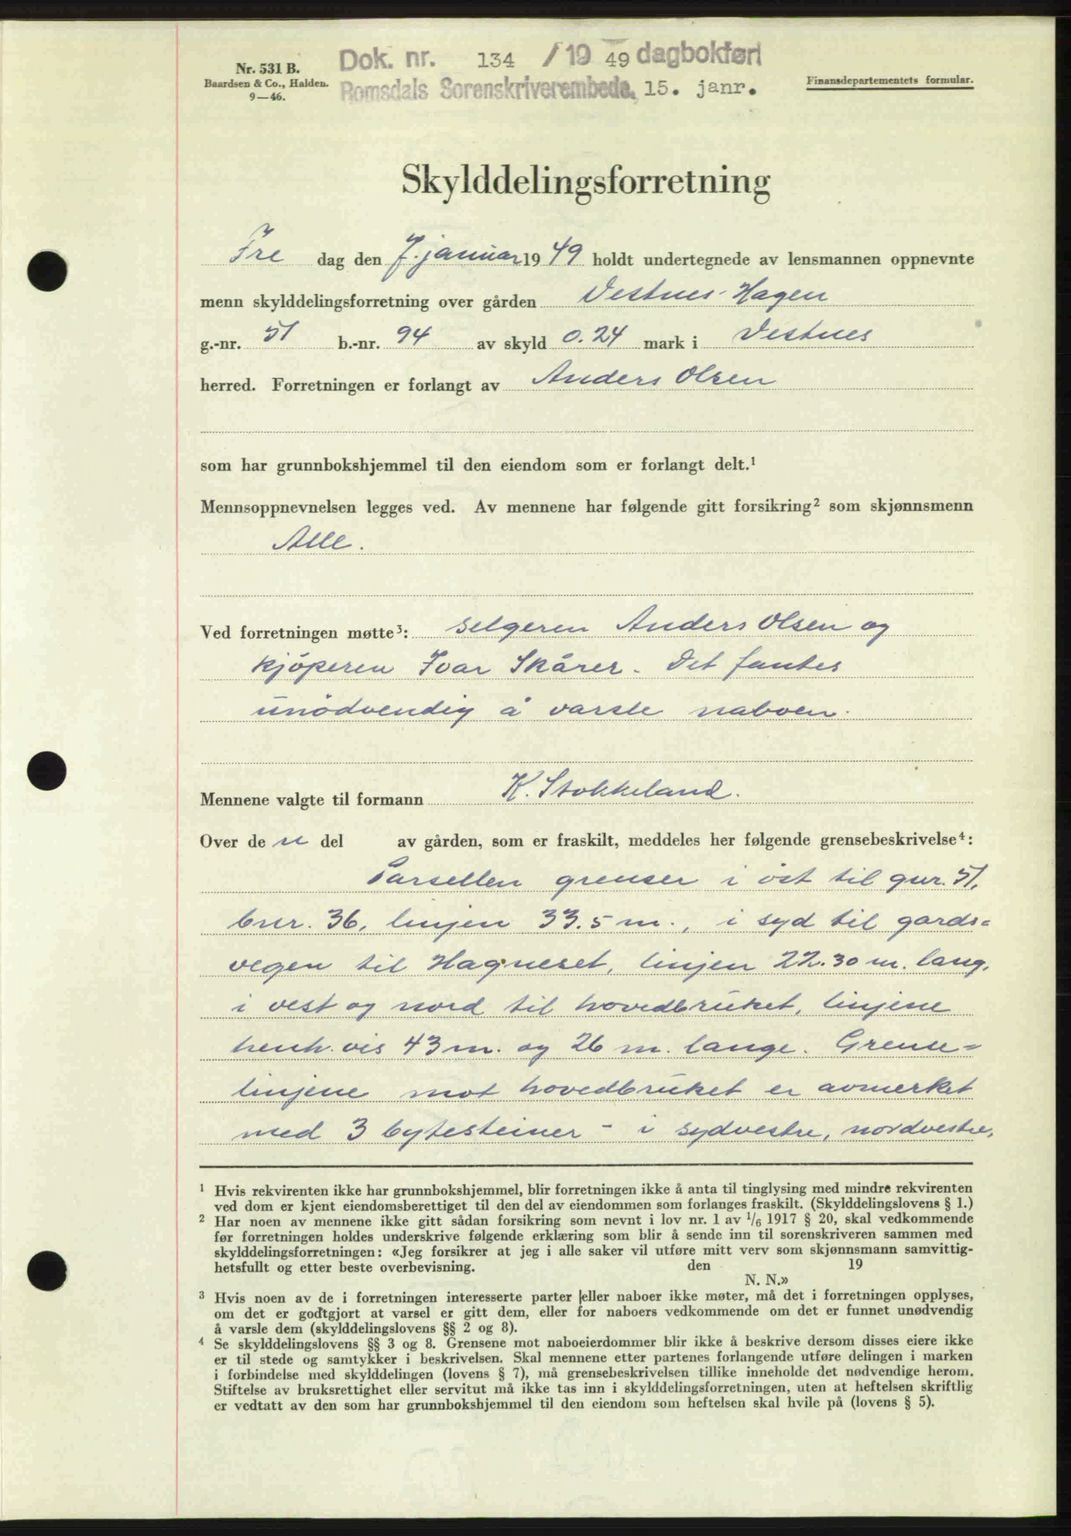 Nr. 531 B.
Baardsen & Co., Halden.
9—46.
Dok. nr. 134 / 19 49 dagbokført
Romsdals Sorenskriverembede. 15. janr.
Finansdepartementets formular.
Skylddelingsforretning
Fre dag den 7. januar 19 49 holdt undertegnede av lensmannen oppnevnte
menn skylddelingsforretning over gården Vestnes-Hagen
g.-nr. 51 b.-nr. 94 av skyld 0.24 mark i Vestnes
herred. Forretningen er forlangt av Anders Olsen
som har grunnbokshjemmel til den eiendom som er forlangt delt.¹
Mennsoppnevnelsen legges ved. Av mennene har følgende gitt forsikring² som skjønnsmenn
Alle.
Ved forretningen møtte³: selgeren Anders Olsen og
kjöperen Ivar Skårer. Det fantes
unödvendig å varsle naboen.
Mennene valgte til formann K. Stokkeland.
Over de n del av gården, som er fraskilt, meddeles her følgende grensebeskrivelse⁴:
Parsellen grenser i öst til gnr. 51,
bnr. 36, linjen 33.5 m., i syd til gards=
vegen til Hagneset, linjen 22.30 m. lang,
i vest og nord til hovedbruket, linjene
henh. vis 43 m. og 26 m. lange. Grense=
linjene mot hovedbruket er avmerket
med 3 bytesteiner - i sydvestre, nordvestre,
¹ Hvis rekvirenten ikke har grunnbokshjemmel, blir forretningen ikke å anta til tinglysing med mindre rekvirenten
ved dom er kjent eiendomsberettiget til den del av eiendommen som forlanges fraskilt. (Skylddelingslovens § 1.)
² Har noen av mennene ikke gitt sådan forsikring som nevnt i lov nr. 1 av 1/6 1917 § 20, skal vedkommende
før forretningen holdes underskrive følgende erklæring som blir å sende inn til sorenskriveren sammen med
skylddelingsforretningen: «Jeg forsikrer at jeg i alle saker vil utføre mitt verv som skjønnsmann samvittig-
hetsfullt og etter beste overbevisning. den 19
N. N.»
³ Hvis noen av de i forretningen interesserte parter eller naboer ikke møter, må det i forretningen opplyses,
om det er godtgjort at varsel er gitt dem, eller for naboers vedkommende om det er funnet unødvendig
å varsle dem (skylddelingslovens §§ 2 og 8).
⁴ Se skylddelingslovens §§ 3 og 8. Grensene mot naboeierdommer blir ikke å beskrive dersom disses eiere ikke
er til stede og samtykker i beskrivelsen. Skal mennene etter partenes forlangende utføre delingen i marken
i forbindelse med skylddelingen (lovens § 7), må grensebeskrivelsen tillike inneholde det nødvendige herom.
Stiftelse av bruksrettighet eller servitut må ikke tas inn i skylddelingsforretningen, uten at heftelsen skriftlig
er vedtatt av den som har grunnbokshjemmel til den eiendom som heftelsen skal hvile på (lovens § 5).